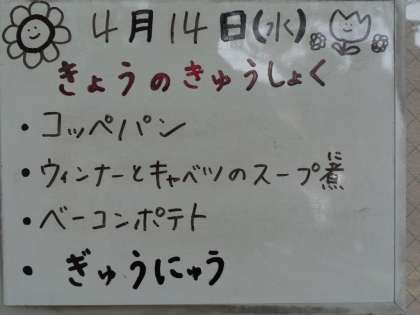 4月14日(水)
きょうのきゅうしょく
・コッペパン
・ウィンナーとキャベツのスープ煮
・ベーコンポテト
・ぎゅうにゅう